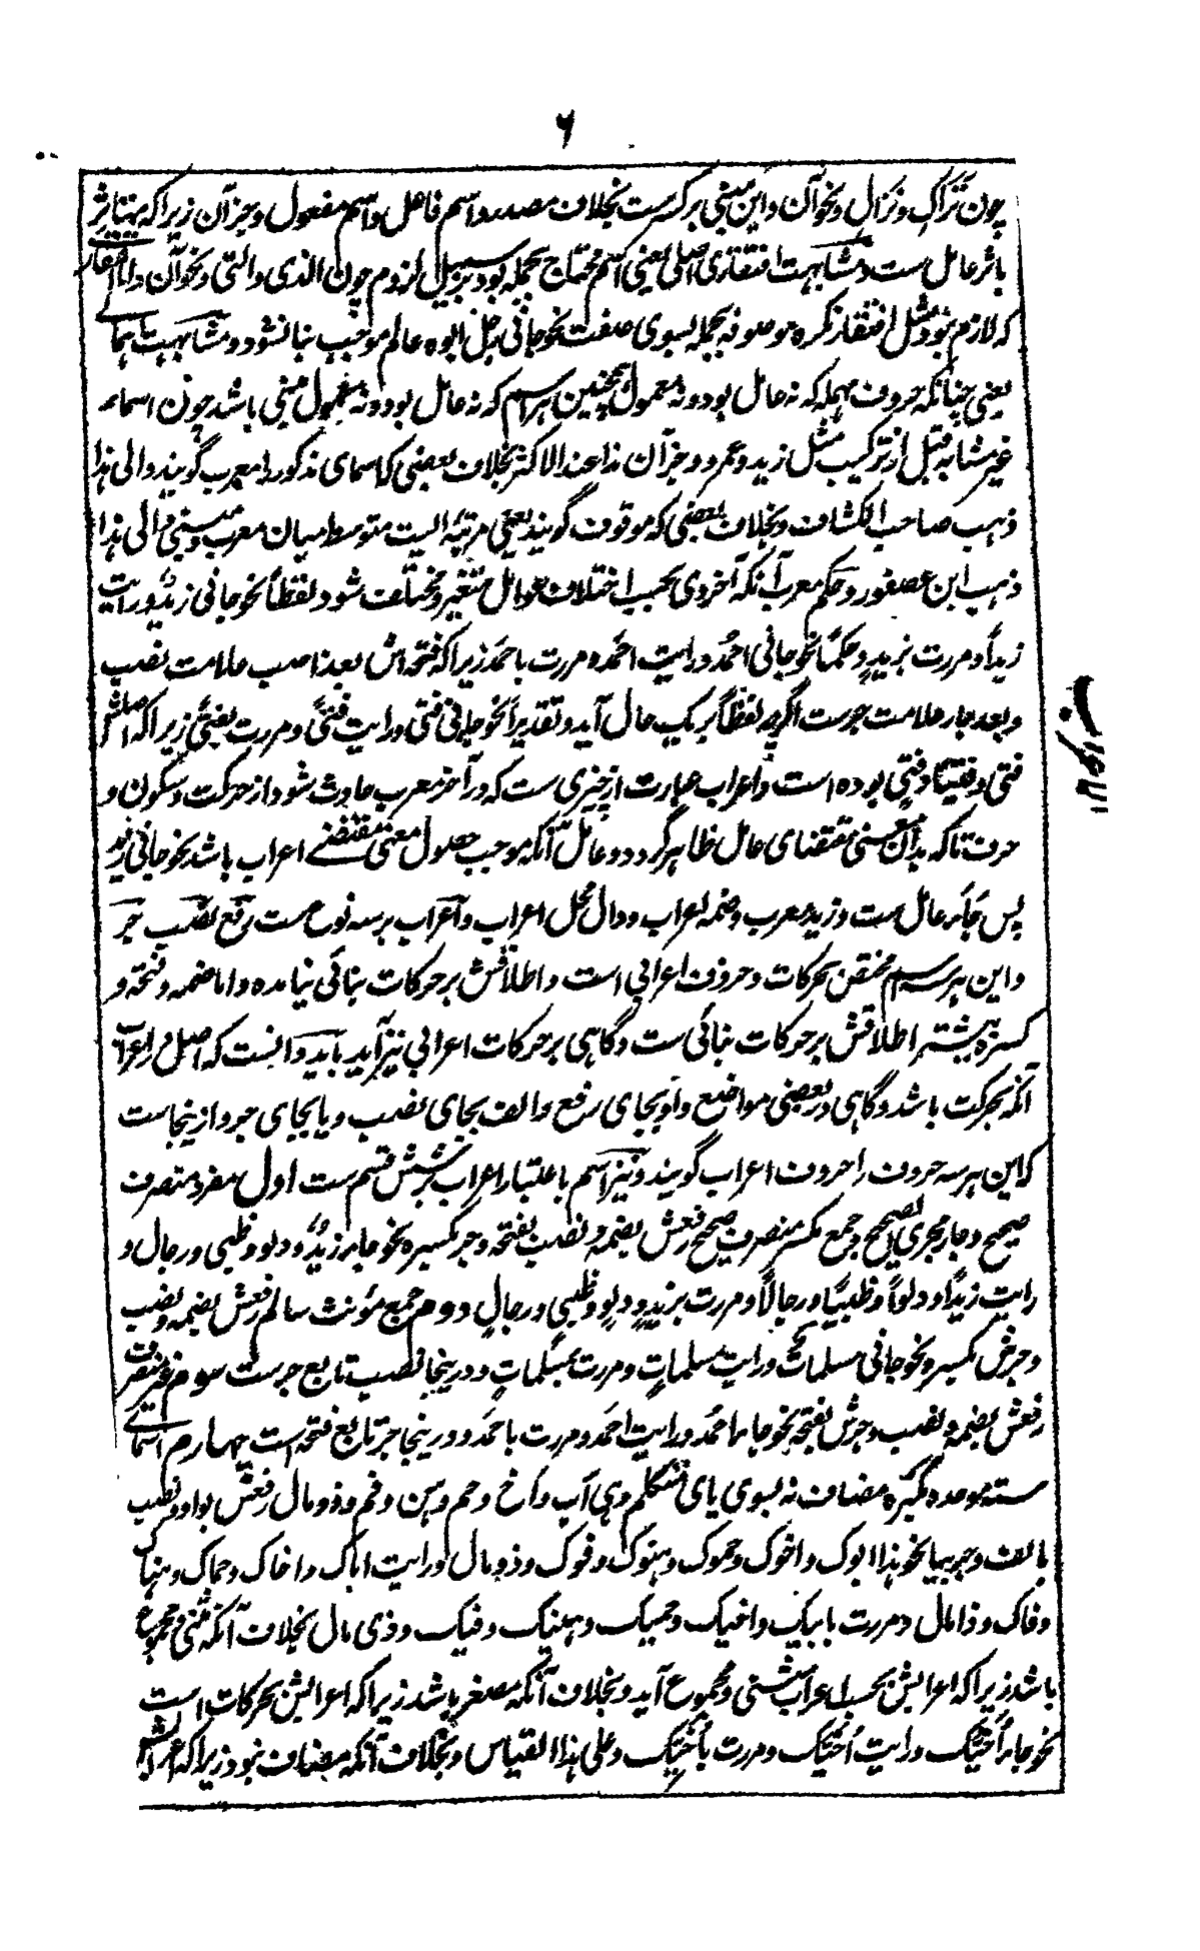 ۶
چون تَراکِ و نزالِ و نحو آن و این مبنی بر کسرست بخلاف مصدر و اسم فاعل و اسم مفعول و جز آن زیرا که بتاثر
باثر عامل ست و مشابهت افتقاری اصلی یعنی اسم محتاج بجمله بود بر سبیل لزوم چون الذی والتی و نحو آن و اما افتقاریکه
که لازم نبود مثل افتقار نکره موصوفه بجمله بسوی صفت نحو جانی رجل ابوه عالم موجب بنا نشود و مشابهت
یعنی چنانکه حروف مهمله که نه عامل بود و نه معمول همچنین هر اسم که نه عامل بود و نه معمول مبنی باشد چون اسماء
غیر مشابه قبل از ترکیب مثل زید و عمرو و جز آن هذا عند الاکثر بخلاف بعضی که اسمای مذکور را معرب گویند والی هذا
ذهب صاحب الکشاف و بخلاف بعضی که موقوف گویند یعنی مرتبه ایست متوسط میان معرب و مبنی والی هذا
ذهب ابن عصفور و حکم معرب آنکه آخر وی بحسب اختلاف عوامل متغیر و مختلف شود لفظاً نحو جانی زیدٌ و رایت
زیداً و مررت بزیدٍ و حکماً نحو جانی احمدُ و رایت احمدَ و مررت باحمدَ زیرا که فتحه اش بعد ناصب علامت نصب
و بعد جار علامت جرست اگرچه لفظاً بر یک حال آید و تقدیراً نحو جانی فتیً و رایت فتیً و مررت بفتیً زیرا که اصلش
فتی و فتیاً و فتیٍ بوده است و اعراب عبارت از چیزی ست که در آخر معرب حادث شود از حرکت و سکون و
حرف تا که بدان معنی مقتضای عامل ظاهر گردد و عامل آنکه موجب حصول معنی مقتضئ اعراب باشد نحو جانی زید
پس جَاءَ عامل ست و زید معرب و ضمه اعراب و دال محل اعراب و اَعراب بر سه نوع ست رفع نصب جر
و این هر سه اسم مختص بحرکات و حروف اعرابی است و اطلاقش بر حرکات بنائی نیامده و اما ضمه و فتحه و
کسره بیشتر اطلاقش بر حرکات بنائی ست و گاهی بر حرکات اعرابی نیز آید باید دانست که اصل در اعراب
آنکه بحرکت باشد و گاهی در بعضی مواضع واو بجای رفع و الف بجای نصب و یا بجای جر و ازینجاست
که این هر سه حروف را حروف اعراب گویند و نیز اسم باعتبار اعراب بر شش قسم ست اول مفرد منصرف
صحیح و جار مجری الصحیح و جمع مکسر منصرف صحیح رفعش بضمه و نصب بفتحه و جر بکسره نحو جاء زیدٌ و دلو و ظبی و رجال و
رایت زیداً و دلواً و ظبیاً و رجالاً و مررت بزیدٍ و دلوٍ و ظبیٍ و رجالٍ دوم جمع مؤنث سالم رفعش بضمه و نصب
و جرش بکسره نحو جانی مسلماتٌ و رایت مسلماتٍ و مررت بمسلماتٍ و درینجا نصب تابع جرست سوم غیر منصرف
رفعش بضمه و نصب و جرش بفتحه نحو جاء احمدُ و رایت احمدَ و مررت باحمدَ و درینجا جر تابع فتحه است چهارم اسمائے
سته موحده مکبره مضاف نه بسوی یای متکلم و هی اَب و اَخ و حم و هن و فم و ذومال رفعش بواو و نصب
بالف و جر بیا نحو هذا ابوک و اخوک و حموک و هنوک و فوک و ذومال و رایت اباک و اخاک و حماک و هناک
و فاک و ذامال و مررت بابیک و اخیک و حمیک و هنیک و فیک و ذی مال بخلاف آنکه مثنی و مجموع
باشد زیرا که اعرابش بحسب اعراب مثنی و مجموع آید و بخلاف آنکه مصغر باشد زیرا که اعرابش بحرکات است
نحو جاء اُخَیُّک و رایت اُخَیَّک و مررت باُخَیِّک و علی هذا القیاس و بخلاف آنکه مضاف نبود زیرا که اعرابش
الاعراب